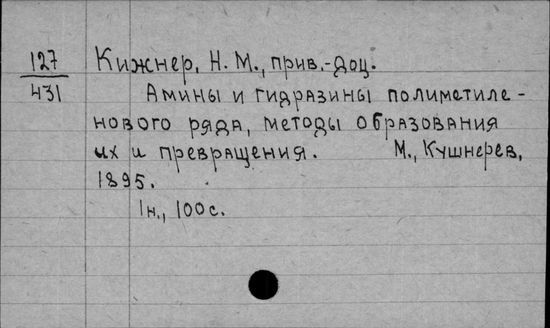 127 Кижнер, Н. М., прив.-доц.
431 Амины и гидразины полиметиле-
нового ряда, методы образования
их и превращения. М., Кушнерев,
1895.
1н., 100с.